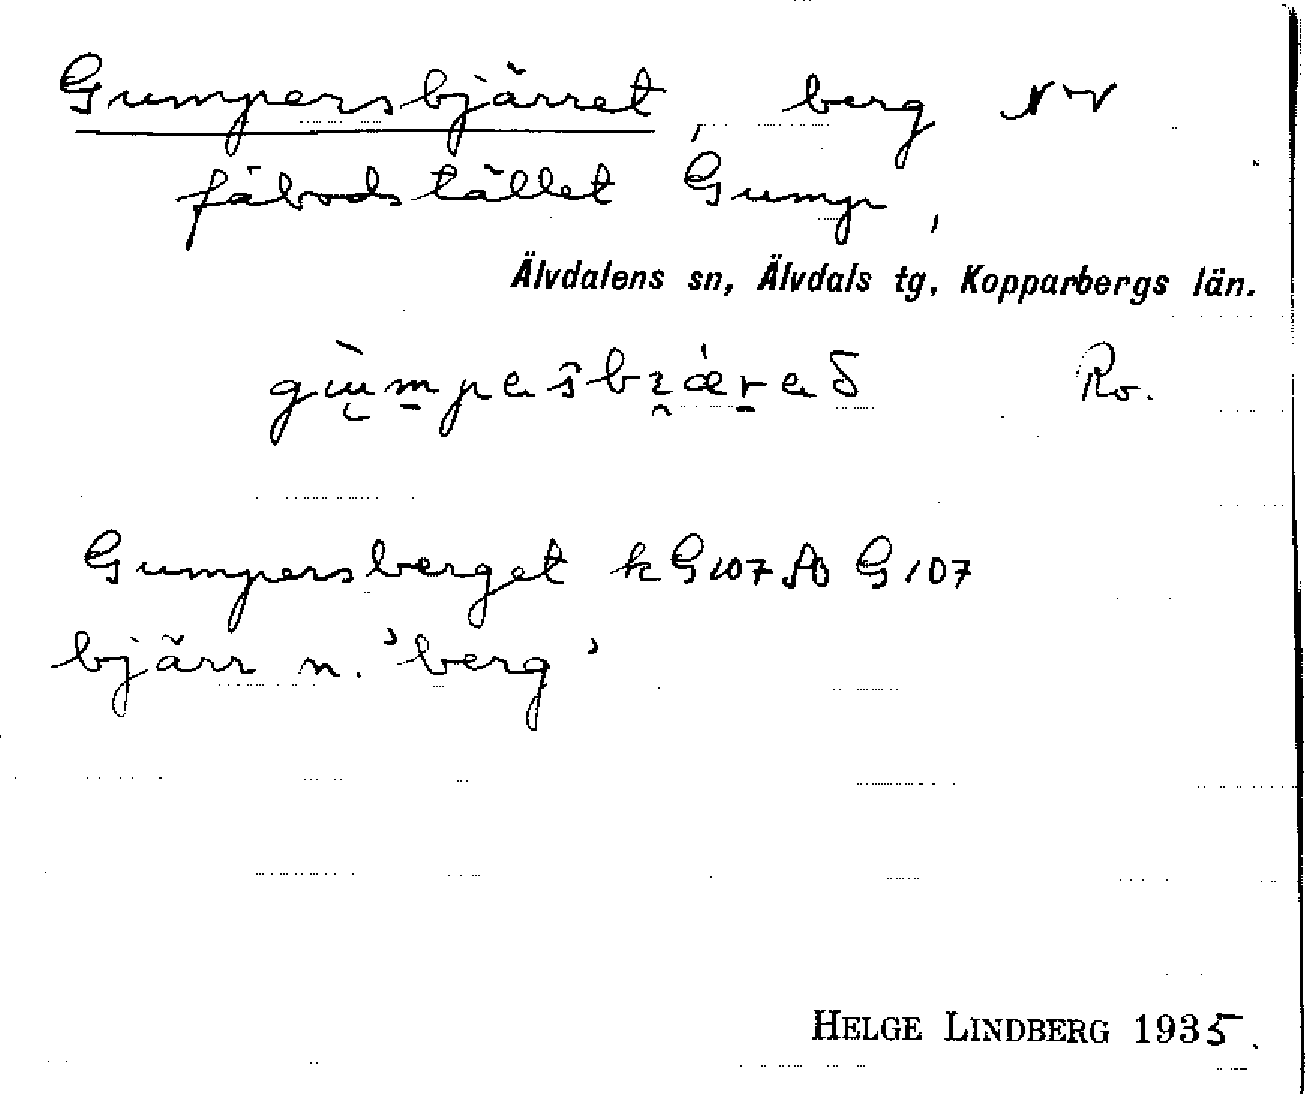 Gumpersbjärret, berg NV
fäbodstället Gump,
Älvdalens sn, Älvdals tg, Kopparbergs län.
Ro.
Gumpersberget k G107 Ao G107
bjärr n. 'berg'
HELGE LINDBERG 1935.